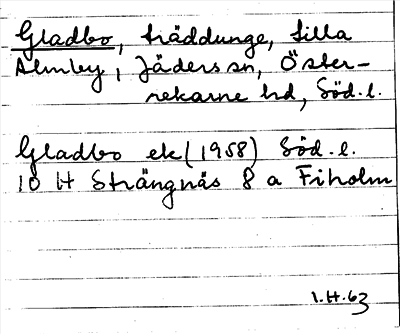 Gladbo, träddunge, Lilla
Almby, Jäders sn, Öster-
rekarne hd, Söd. l.
Gladbo ek (1958) Söd. l.
10 H Strängnäs 8 a Fiholm
1.H.63